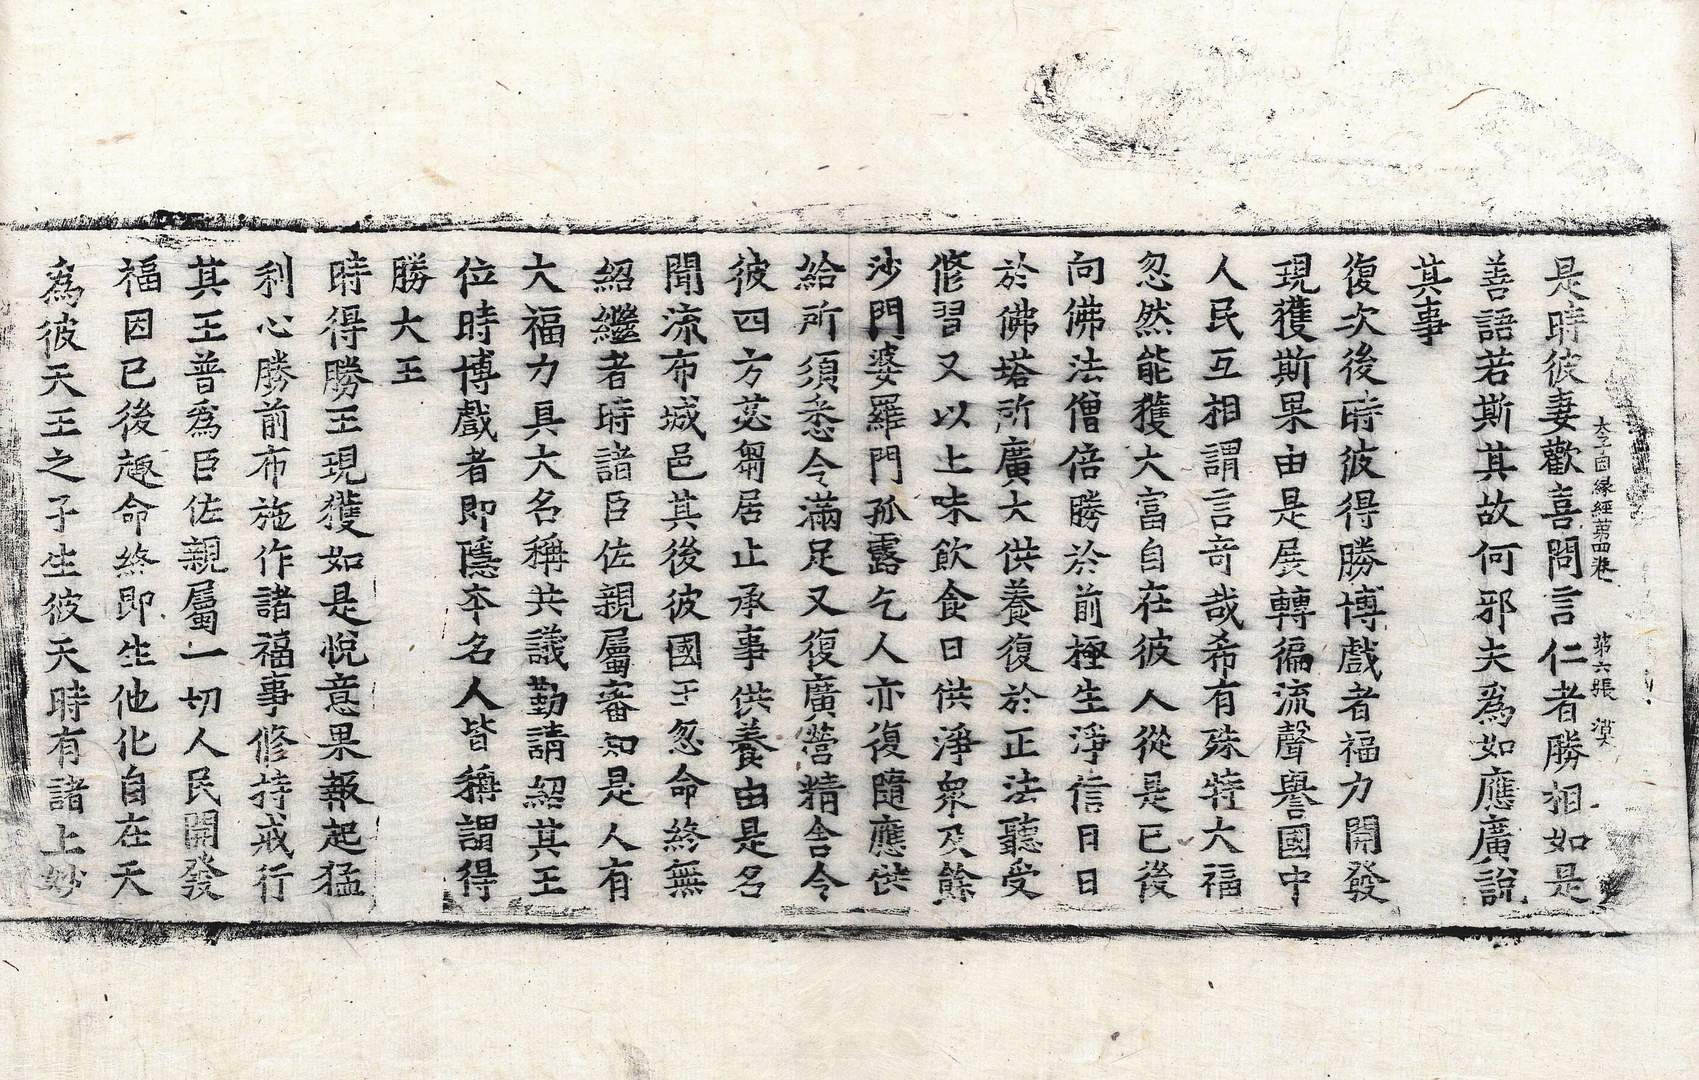 是時彼妻歡喜問言仁者勝相如是
太子因縁經第四卷 第六張 漠
善語若斯其故何邪夫爲如應廣說
其事
復次後時彼得勝博戲者福力開發
現獲斯果由是展轉徧流聲譽國中
人民互相謂言奇哉希有殊特大福
忽然能獲大富自在彼人從是已後
向佛法僧倍勝於前極生淨信日日
於佛塔所廣大供養復於正法聽受
修習又以上味飲食日供淨衆及餘
沙門婆羅門孤露乞人亦復隨應供
給所須悉令滿足又復廣營精舍令
彼四方苾芻居止承事供養由是名
聞流布城邑其後彼國王忽命終無
紹繼者時諸臣佐親屬審知是人有
大福力具大名稱共議勤請紹其王
位時博戲者即隱本名人皆稱謂得
勝大王
時得勝王現獲如是悅意果報起猛
利心勝前布施作諸福事修持戒行
其王普爲臣佐親屬一切人民開發
福因已後趣命終即生他化自在天
爲彼天王之子生彼天時有諸上妙